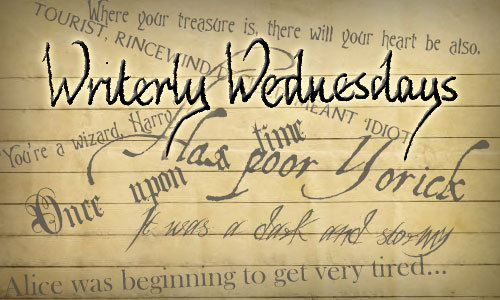 Where your treasure is, there will your heart be also.
TOURIST, RINCEWIND
Writerly Wednesdays
MEANT 'IDIOT'
You're a wizard, Harry
Alas poor Yorick
Once upon a time
It was a dark and stormy
Alice was beginning to get very tired...